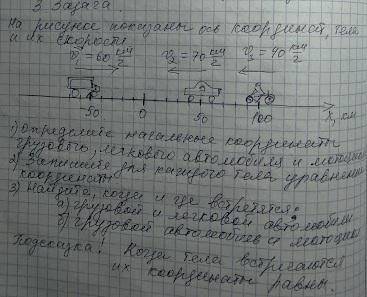 3 Задача.
На рисунке показаны ось координат, тела
и их скорости
v₁=60 км/г v₂=70 км/г v₃=40 км/г
-50 0 50 100 x, км
1) Определите начальные координаты
грузового, легкового автомобиля и
2) Запишите для каждого тела уравнения
координаты
3) Найдите, когда и где встретятся:
а) грузовой и легковой автомобили
б) грузовой автомобиль и мотоцикл
Подсказка! Когда тела встречаются
их координаты равны.